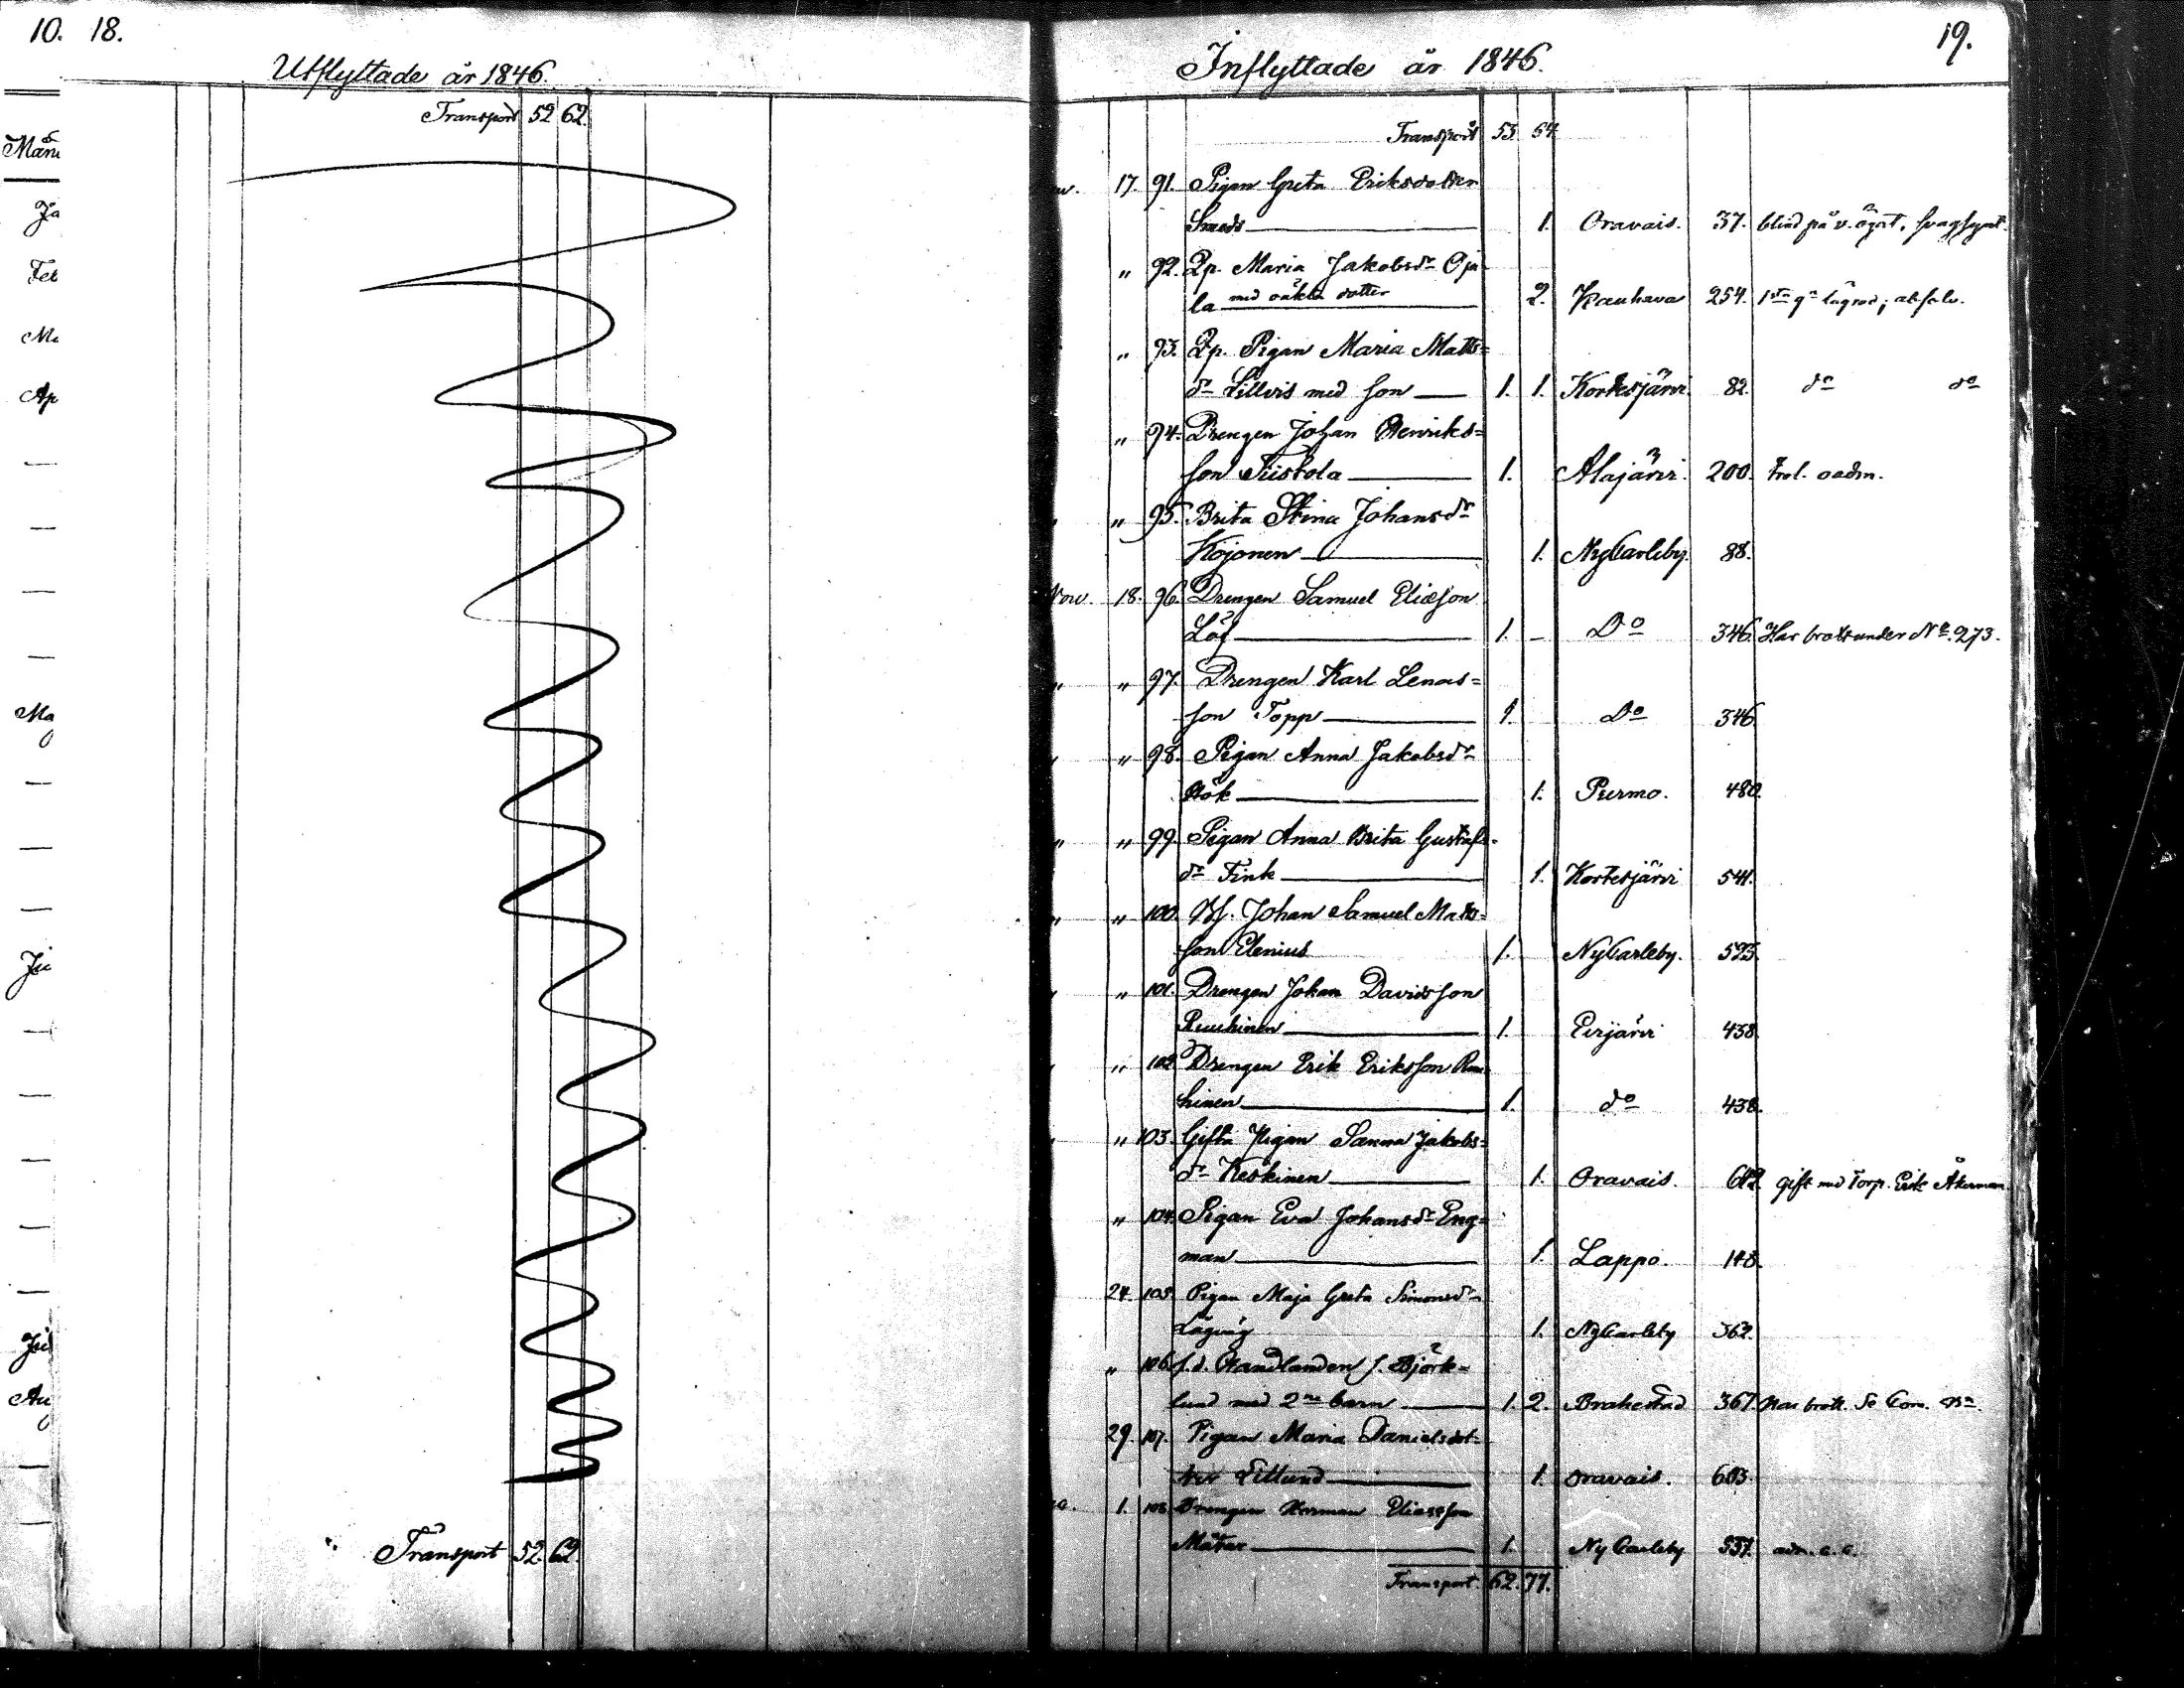 10. 18.
Utflyttade år 1846.
Transport 52 62.
Ja
Feb
Ap
Transport 52. 62.
19.
Inflyttade år 1846.
Transport 53. 64.
17. 91. Pigan Greta Eriksdotter
Smeds 1. Oravais. 37. blind på v. ögat, svagsynt.
" 92. Qp. Maria Jakobsdr Oja
la med oäkta dotter 2. Kauhava 254. absolv.
" 93. Qp. Pigan Maria Matts=
dr Lillvis med son 1. 1. Kortesjärvi 82. do do
" 94. Drengen Johan Henriks=
son Tiistola 1. Alajärvi. 200. oadm.
" 95. Brita Stina Johansdr
Kojonen 1. NyCarleby. 88.
Nov. 18. 96. Drengen Samuel Eliasson
Löf 1. – Do 346. Har brott under No. 273.
" " 97. Drengen Karl Lenas=
son Topp 1. Do 346.
" " 98. Pigan Anna Jakobsdr
Hök 1. Purmo. 480.
" " 99. Pigan Anna Brita Gustafs-
dr Fink 1. Kortesjärvi 541.
" " 100. Johan Samuel Matts=
son Elenius 1. NyCarleby. 523.
" 101. Drengen Johan Davidsson
Ruuhinen 1. Evijärvi 438.
" 102. Drengen Erik Eriksson Ruu
hinen 1. do 438.
" 103. Gifta Pigan Sanna Jakobs=
dr Keskinen 1. Oravais. 612. gift med Torp. Erik Åkerman.
" 104. Pigan Eva Johansdr Eng=
man 1. Lappo. 143.
24. 105. Pigan Maja Greta Simonsdr
1. NyCarleby 362.
" 106. f.d. Handlanden J. Björk=
lund med 2ne barn 1. 2. Brahestad 367. Har brott. Se Com. Bn.
29. 107. Pigan Maria Danielsdot-
ter 1. Oravais. 603.
1. 108. Drengen Herman Eliasson
Mätar 1. Ny Carleby 537.
Transport. 62. 77.